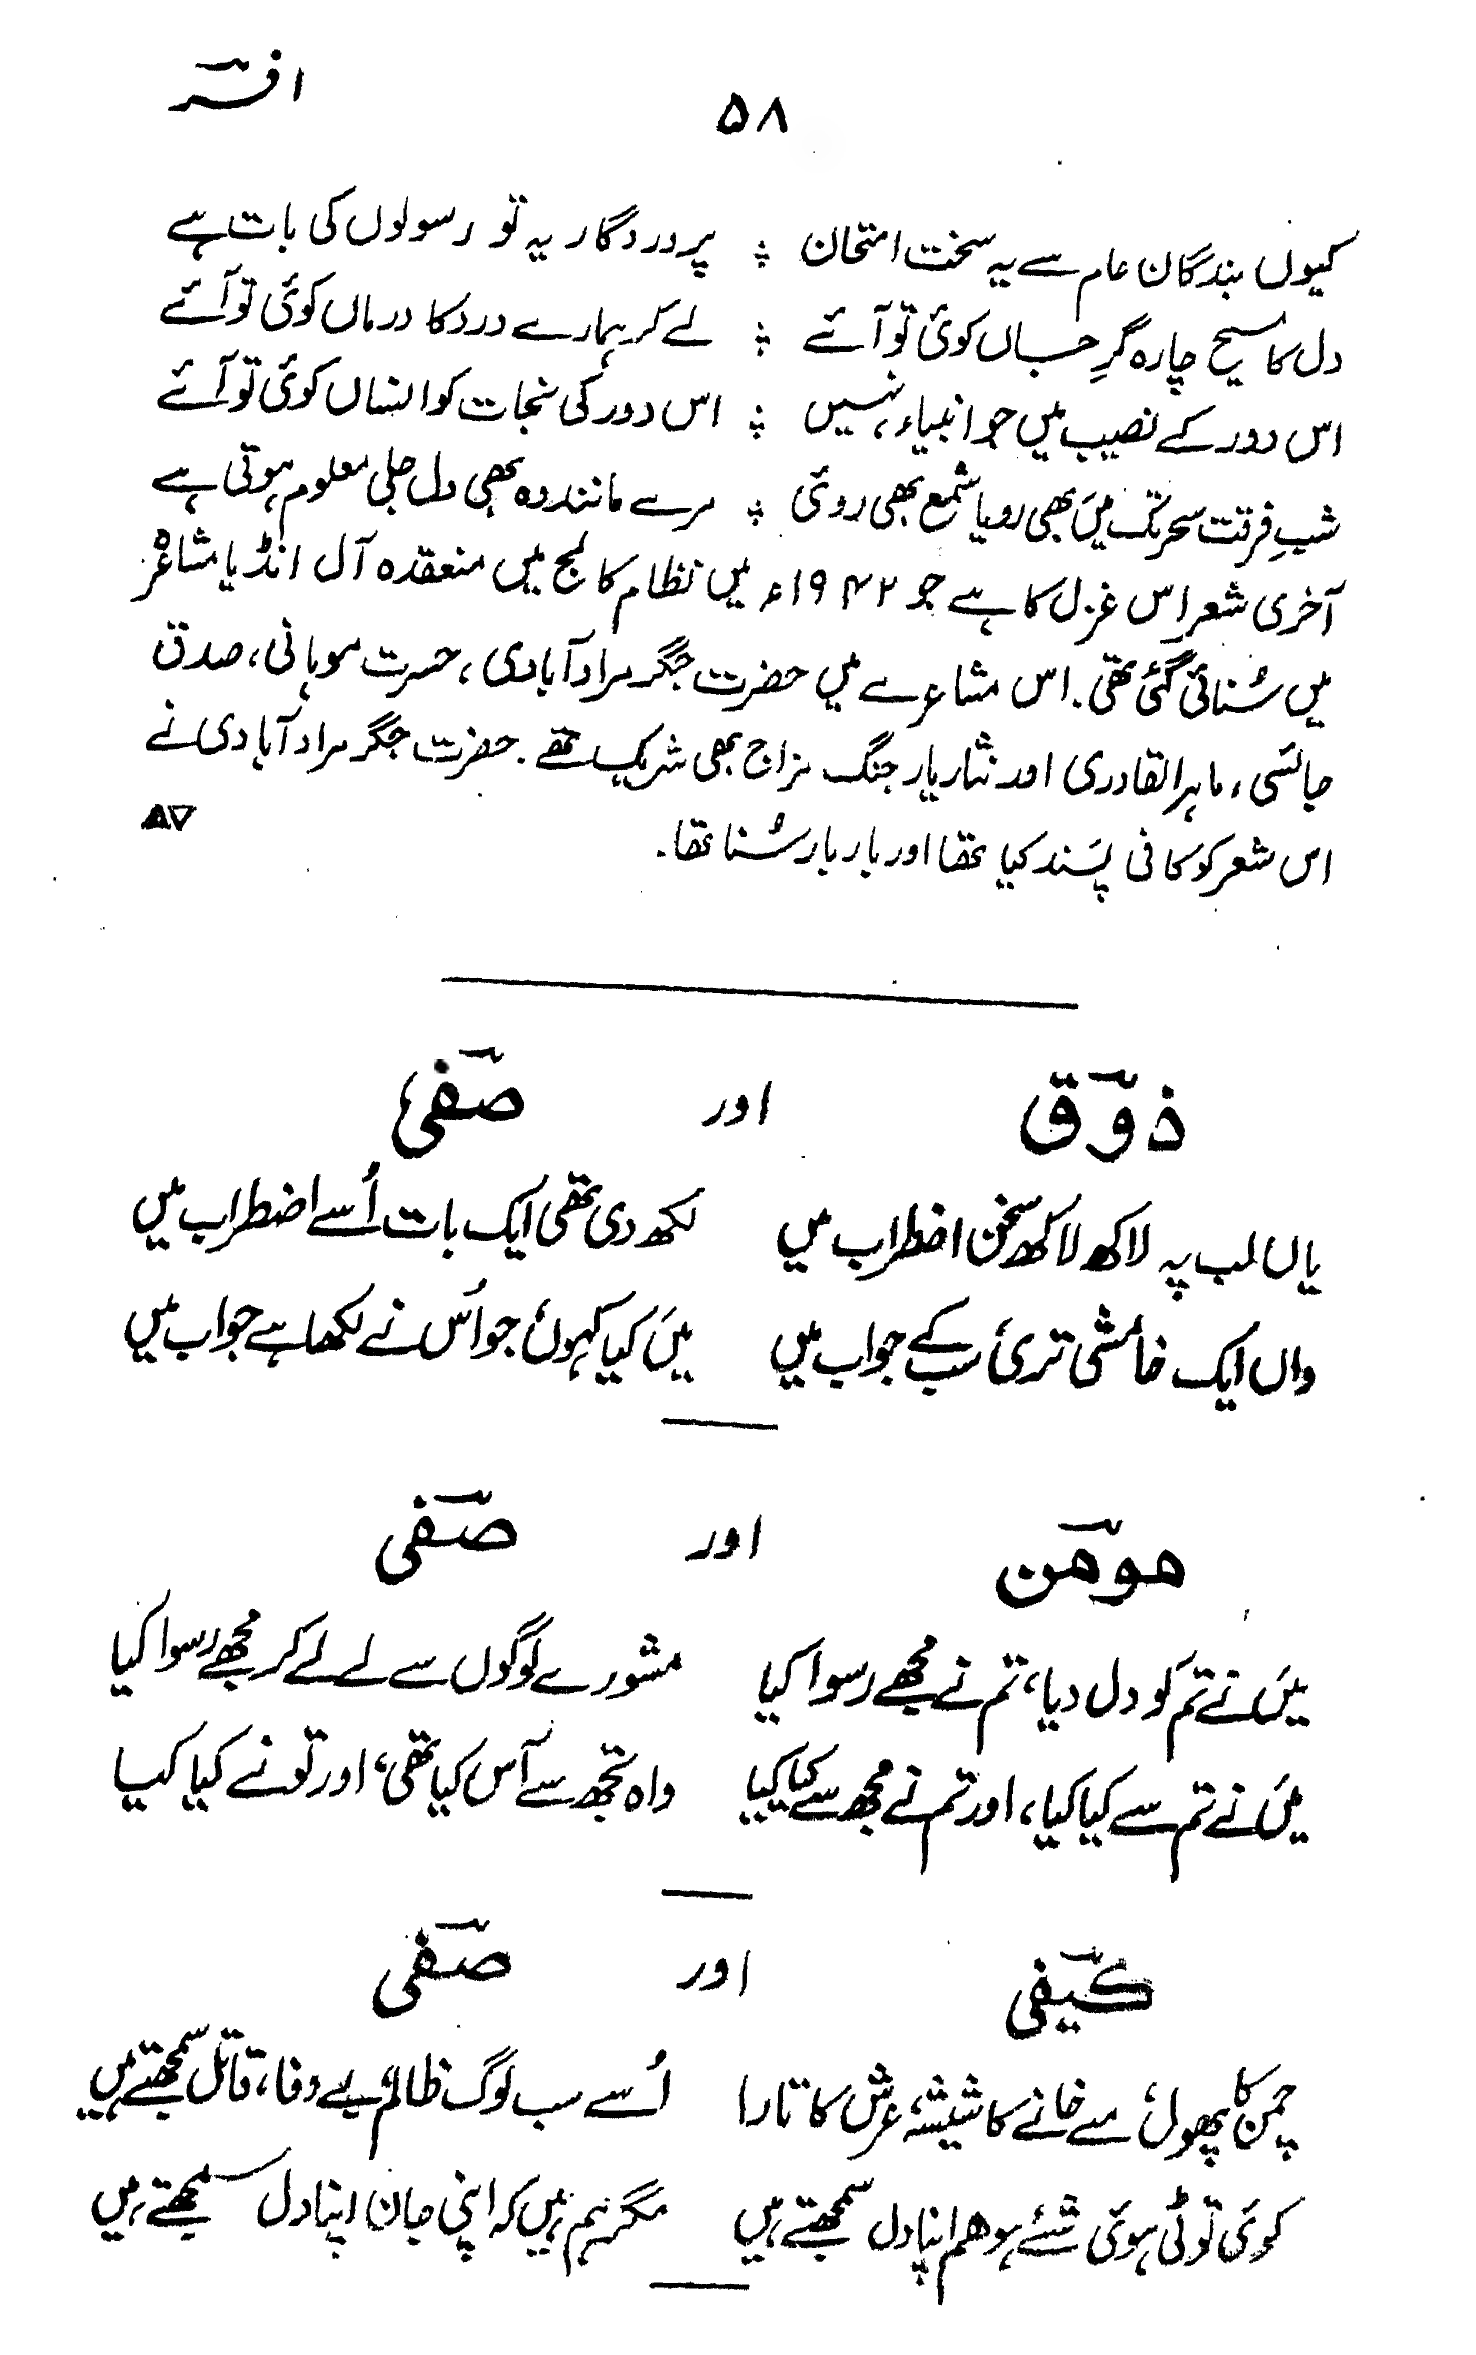 افسر
۵۸
کیوں بندگان عام سے یہ سخت امتحان ؞ پروردگار یہ تو رسولوں کی بات ہے
دل کا مسیح چارہ گرِ جاں کوئی تو آئے ؞ لے کر ہمارے درد کا درماں کوئی تو آئے
اس دور کے نصیب میں جو انبیاء نہیں ؞ اس دور کی نجات کو انساں کوئی تو آئے
شبِ فرقت سحر تک میں بھی رویا شمع بھی روئی ؞ مرے مانند وہ بھی دل جلی معلوم ہوتی ہے
آخری شعر اس غزل کا ہے جو ۱۹۴۲ء میں نظام کالج میں منعقدہ آل انڈیا مشاعرہ
میں سُنائی گئی تھی. اس مشاعرے میں حضرت جگر مرادآبادی، حسرت موہانی، صدق
جائسی، ماہر القادری اور نثار یار جنگ مزاج بھی شریک تھے. حضرت جگر مرادآبادی نے
اس شعر کو کافی پسند کیا تھا اور بار بار سُنا تھا.
ذوق اور صفی
یاں لب پہ لاکھ لاکھ سخن اضطراب میں لکھ دی تھی ایک بات اُسے اضطراب میں
واں ایک خامشی تری سب کے جواب میں میں کیا کہوں جو اُس نے لکھا ہے جواب میں
مومن اور صفی
میں نے تم کو دل دیا، تم نے مجھے رسوا کیا مشورے لوگوں سے لے لے کر مجھے رسوا کیا
میں نے تم سے کیا کیا، اور تم نے مجھ سے کیا کیا واہ تجھ سے آس کیا تھی، اور تو نے کیا کیا
کیفی اور صفی
چمن کا پھول، مے خانے کا شیشہ، عرش کا تارا اُسے سب لوگ ظالم، بے وفا، قاتل سمجھتے ہیں
کوئی ٹوٹی ہوئی شئے ہو ہم اپنا دل سمجھتے ہیں مگر ہم ہیں کہ اپنی جان اپنا دل سمجھتے ہیں